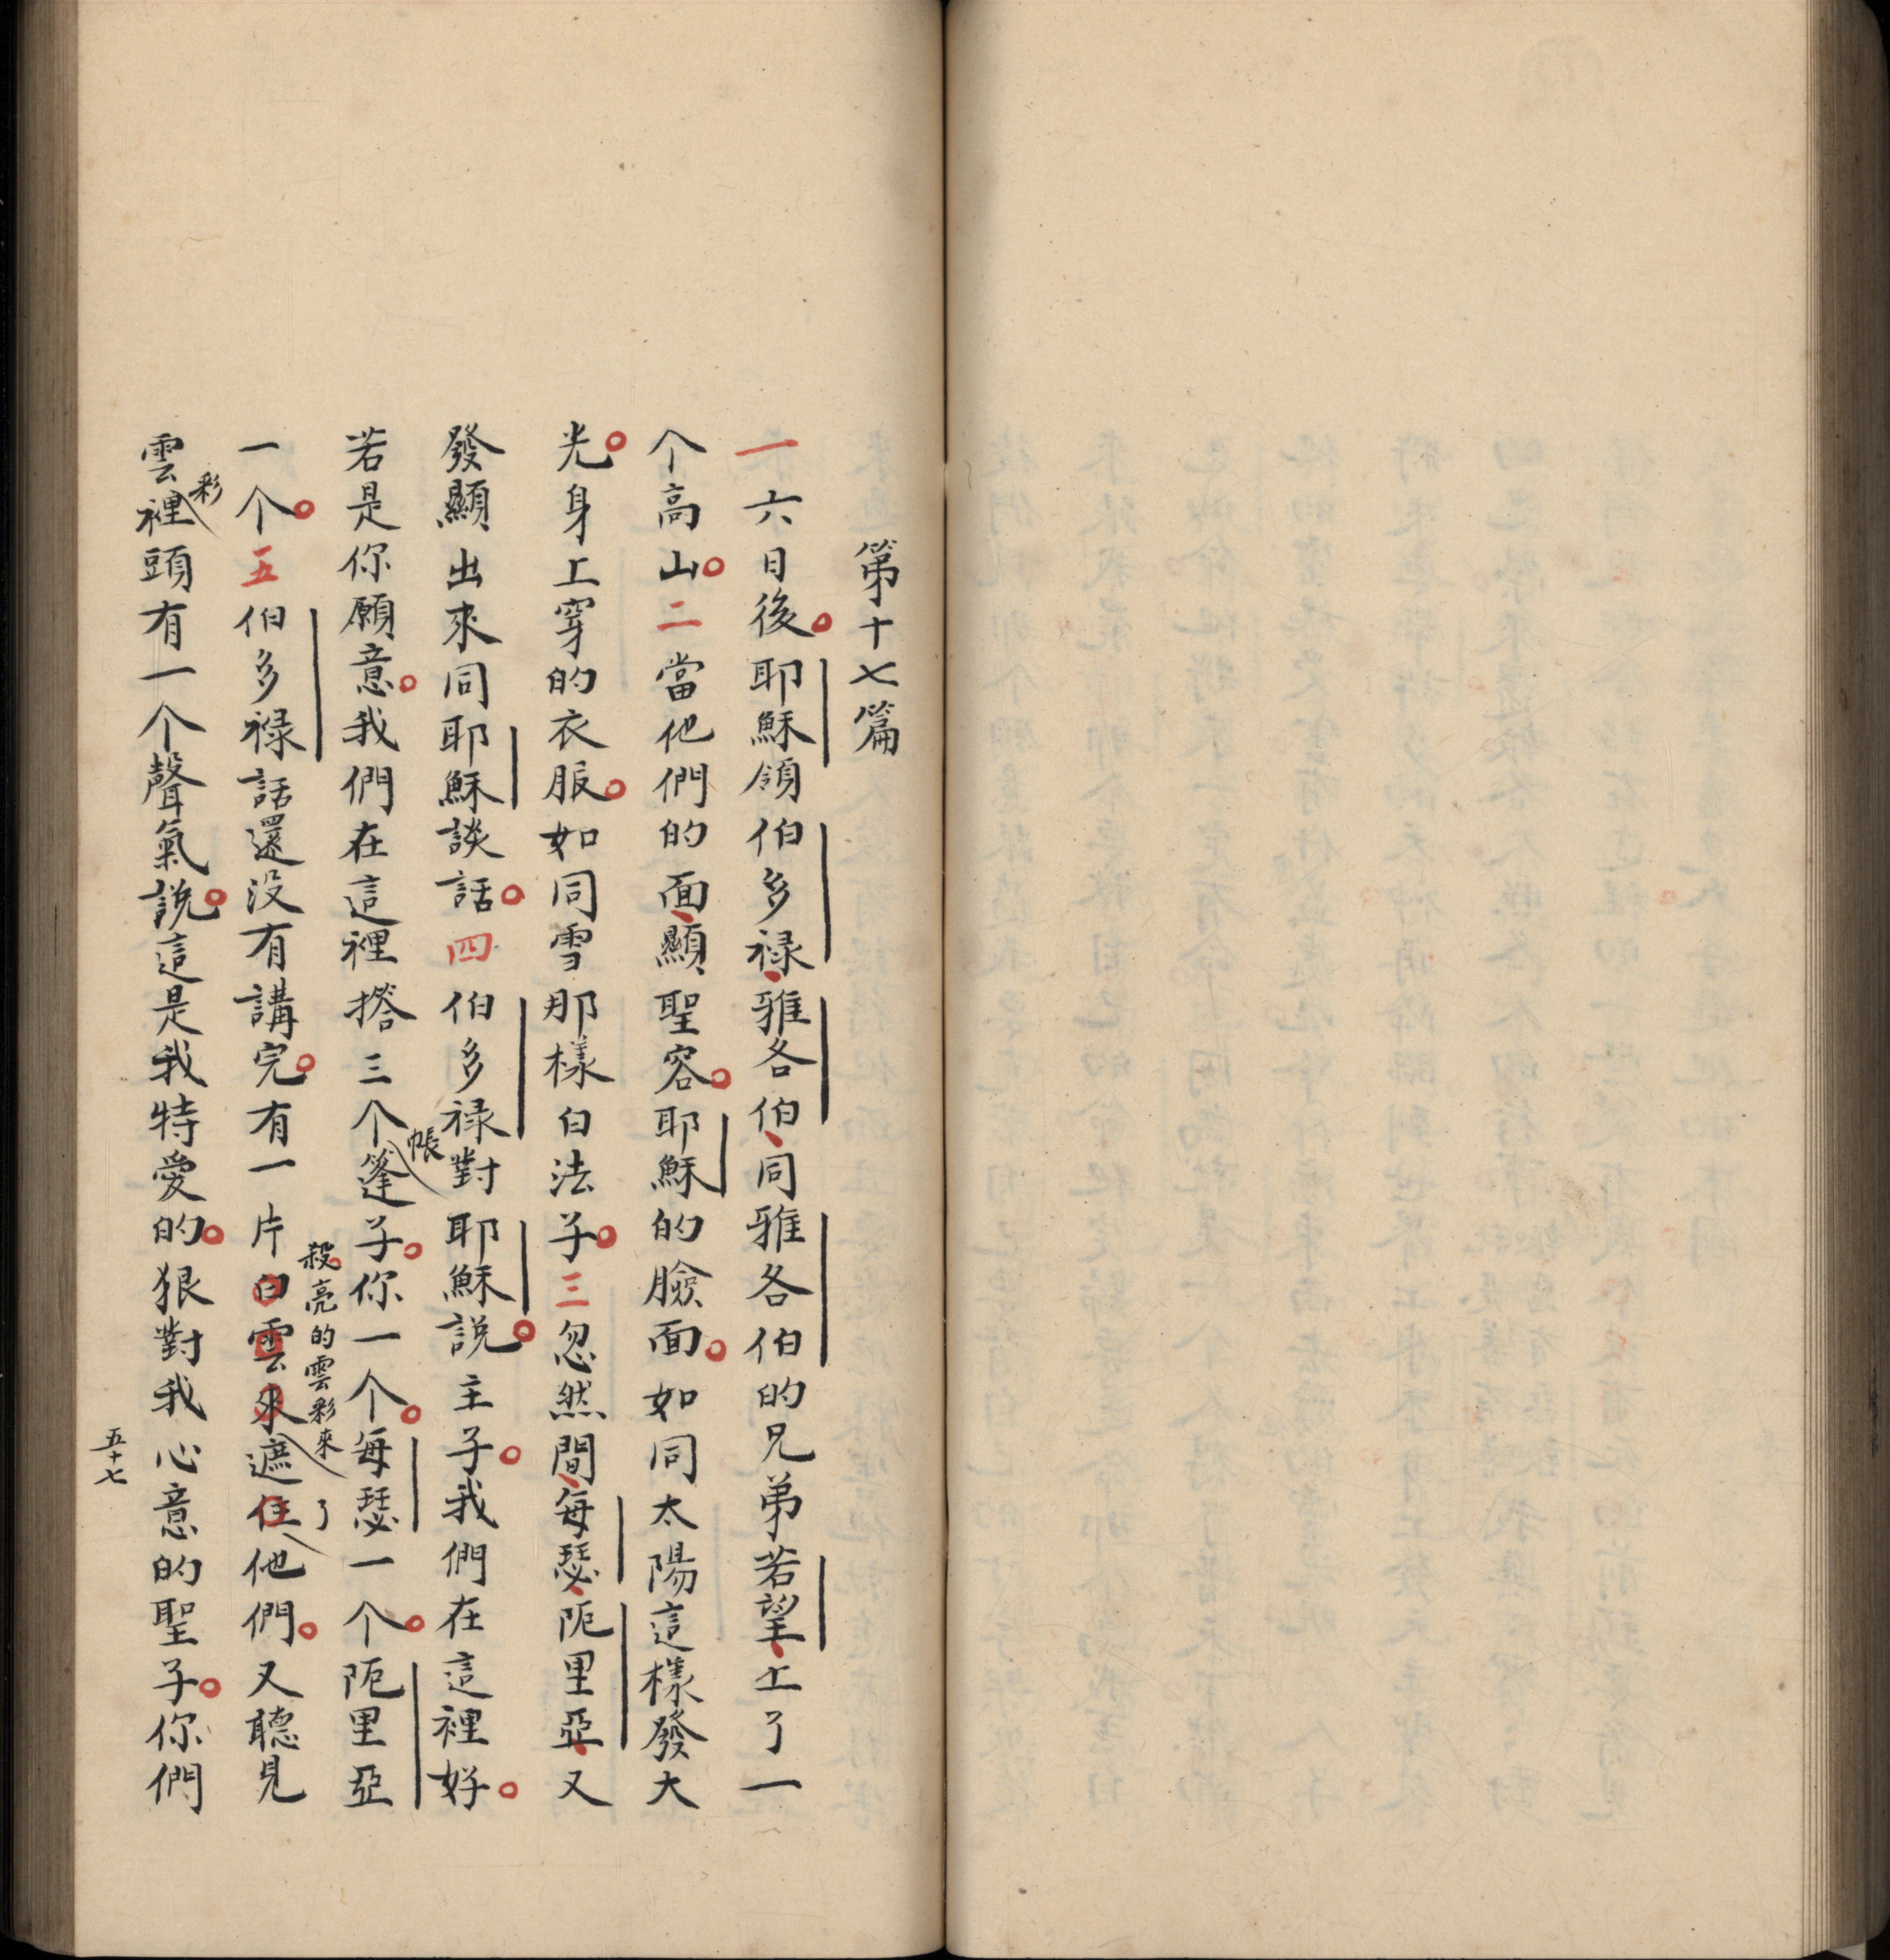 第十七篇
一六日後。耶穌領伯多祿、雅各伯、同雅各伯的兄弟若望、上了一
个高山。二當他們的面、顯聖容。耶穌的臉面。如同太陽這樣發大
光。身上穿的衣服。如同雪那樣白法子。三忽然間、每瑟、阨里亞、又
發顯出來同耶穌談話。四伯多祿對耶穌說。主子。我們在這裡好。
若是你願意。我們在這裡撘三个帳篷子。你一个。每瑟一个。阨里亞
一个。五伯多祿話還没有講完。有一片白雲來殺亮的雲彩來遮住了他們。又聽見
雲彩裡頭有一个聲氣說。這是我特愛的。狠對我心意的聖子。你們
五十七